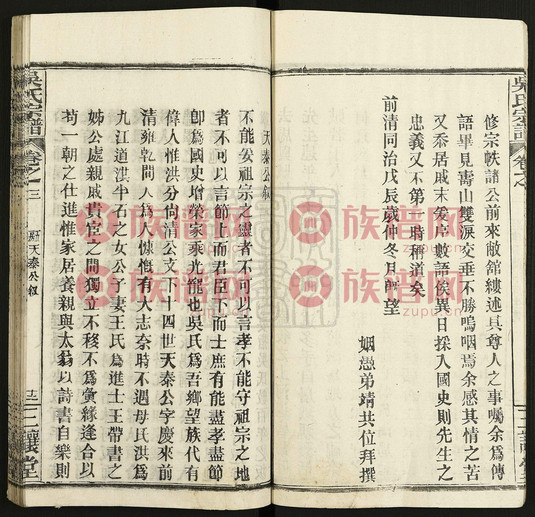 吳氏宗譜
卷之
修宗帙諸公前來敝舘縷述其尊人之事囑余為傳
語畢見壽山雙淚交垂不勝嗚咽焉余感其情之苦
又忝居戚末爰序數語俟異日採入國史則先生之
忠義又不第一時稱道矣
前清同治戊辰歲仲冬月朔望
姻愚弟靖共位拜撰
天泰公叙
不能安祖宗之靈者不可以言孝不能守祖宗之地
者不可以言節上而君臣下而士庶有能盡孝盡節
卽為國史增榮家乘光寵也吳氏為吾鄉望族代有
偉人惟洪分尙清公支下十四世天泰公字慶來前
清雍乾間人為人慷慨有大志奈時不遇母氏洪為
九江道洪半石之女公子妻王氏為進士王帶書之
姊公處親戚貴宦之間獨立不移不為夤緣逢合以
苟一朝之仕進惟家居養親與太翁以詩書自樂則
吳氏宗譜
卷之三
天泰公叙
三讓堂
族谱网
zupu.cn
族谱网
zupu.cn
族谱网
zupu.cn
族谱网
zupu.cn